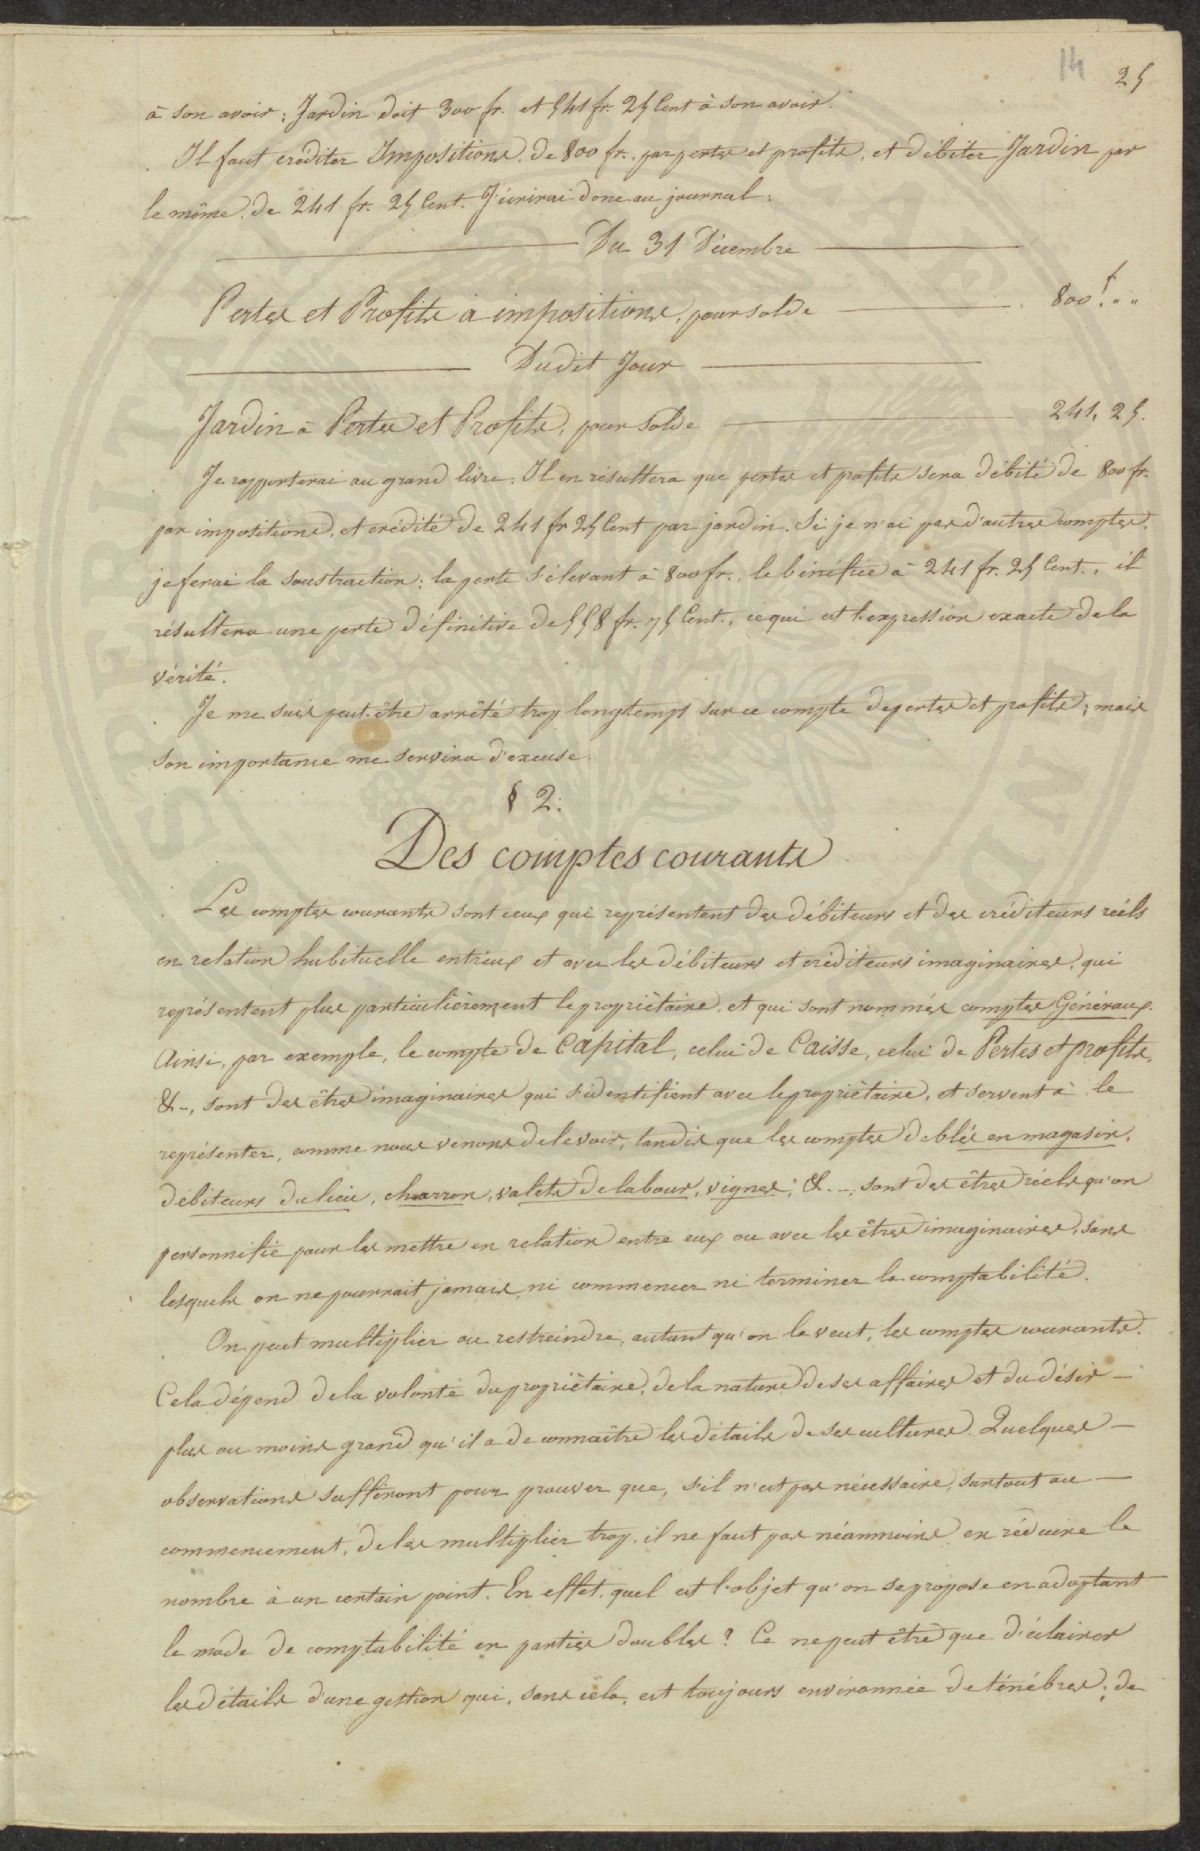 14 25
à son avoir ; Jardin doit 300 fr. et 541 fr. 25 Cent à son avoir.
Il faut créditer Impositions de 800 fr. par pertes et profits, et débiter Jardin par
le même de 241 fr. 25 Cent. J'écrirai donc au journal :
Du 31 Décembre
Pertes et Profits à impositions, pour solde 800f. " "
Dudit Jour
Jardin à Pertes et Profits, pour solde 241, 25.
Je rapporterai au grand livre. Il en résultera que pertes et profits sera débité de 800 fr.
par impositions, et crédité de 241 fr 25 Cent par jardin. Si je n'ai pas d'autres comptes,
je ferai la soustraction : la perte s'élevant à 800 fr., le bénéfice à 241 fr. 25 Cent., il
résultera une perte définitive de 558 fr. 75 Cent., ce qui est l'expression exacte de la
vérité.
Je me suis peut-être arrêté trop longtemps sur ce compte de pertes et profits ; mais
son importance me servira d'excuse.
§ 2.
Des comptes courants
Les comptes courants sont ceux qui représentent des débiteurs et des créditeurs réels
en relation habituelle entr'eux et avec les débiteurs et créditeurs imaginaires, qui
représentent plus particulièrement le propriétaire, et qui sont nommés comptes Généraux.
Ainsi, par exemple, le compte de Capital, celui de Caisse, celui de Pertes et profits,
&-, sont des êtres imaginaires qui s'identifient avec le propriétaire, et servent à le
représenter, comme nous venons de le voir, tandis que les comptes de blés en magasin,
débiteurs du lieu, charron, valets de labour, vignes, &.-, sont des êtres réels qu'on
personnifie pour les mettre en relation entre eux ou avec les êtres imaginaires, sans
lesquels on ne pourrait jamais, ni commencer ni terminer la comptabilité.
On peut multiplier ou restreindre, autant qu'on le veut, les comptes courants.
Cela dépend de la volonté du propriétaire, de la nature de ses affaires et du désir -
plus ou moins grand qu'il a de connaître les détails de ses cultures. Quelques -
observations suffiront pour prouver que, s'il n'est pas nécessaire, surtout au -
commencement, de les multiplier trop, il ne faut pas néanmoins en réduire le
nombre à un certain point. En effet, quel est l'objet qu'on se propose en adoptant
le mode de comptabilité en parties doubles ? Ce ne peut être que d'éclairer
les détails d'une gestion qui, sans cela, est toujours environnée de ténèbres ; de